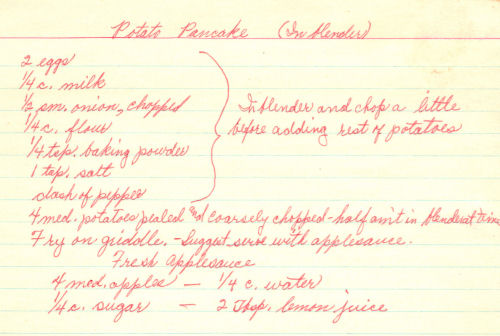 Potato Pancake (In blender)
2 eggs
1/4 c. milk
1/2 sm. onion, chopped
1/4 c. flour
1/4 tsp. baking powder
1 tsp. salt
dash of pepper
In blender and chop a little
before adding rest of potatoes
4 med. potatoes pealed and coarsely chopped - half am't in blender at time
Fry on griddle. - Suggest serve with applesauce.
Fresh Applesauce
4 med. apples - 1/4 c. water
1/4 c. sugar - 2 Tbsp. lemon juice